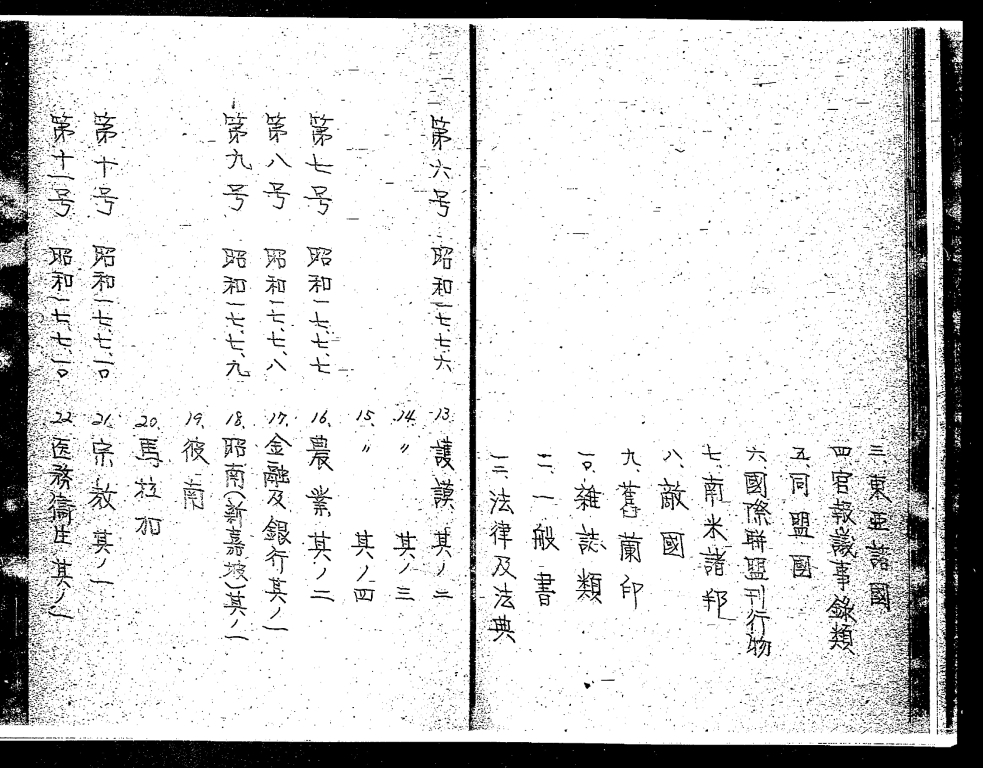 三、東亜諸國
四官報議事錄類
五、同盟國
六、國際聯盟刊行物
七、南米諸邦
八、敵國
九、舊蘭印
一〇、雜誌類
一一、一般書
一二、法律及法典
第六号 昭和一七、七、六 13. 護謨 其ノ二
14. 〃 其ノ三
15. 〃 其ノ四
第七号 昭和一七、七、七 16. 農業 其ノ二
第八号 昭和一七、七、八 17. 金融及銀行其ノ一
第九号 昭和一七、七、九 18. 昭南(新嘉坡)其ノ一
19. 彼南
20. 馬拉加
第十号 昭和一七、七、一〇 21. 宗教 其ノ一
第十一号 昭和一七、七、一〇 22. 医務衛生 其ノ一